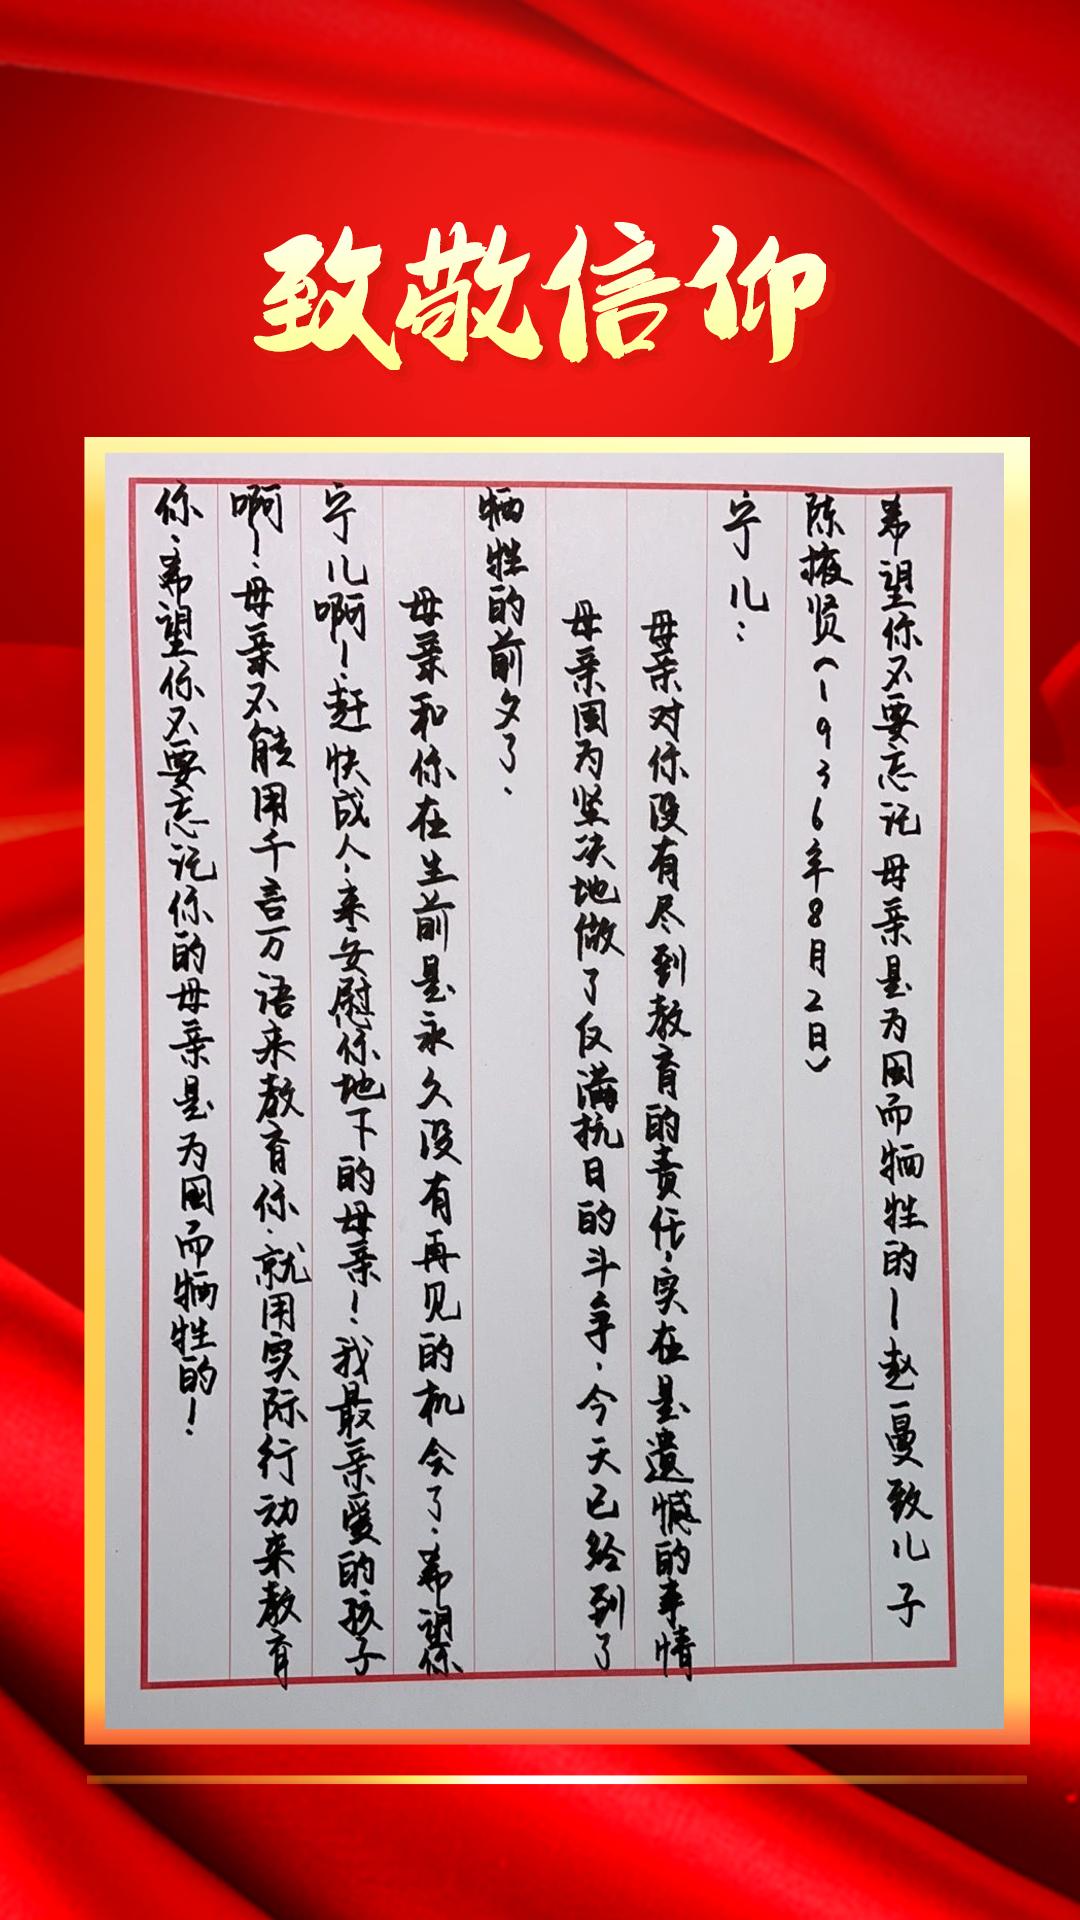 致敬信仰
希望你不要忘记母亲是为国而牺牲的—赵一曼致儿子
陈掖贤(1936年8月2日)
宁儿：
母亲对你没有尽到教育的责任，实在是遗憾的事情
母亲因为坚决地做了反满抗日的斗争，今天已经到了
牺牲的前夕了。
母亲和你在生前是永久没有再见的机会了。希望你
宁儿啊！赶快成人，来安慰你地下的母亲！我最亲爱的孩子
啊！母亲不能用千言万语来教育你，就用实际行动来教育
你，希望你不要忘记你的母亲是为国而牺牲的！